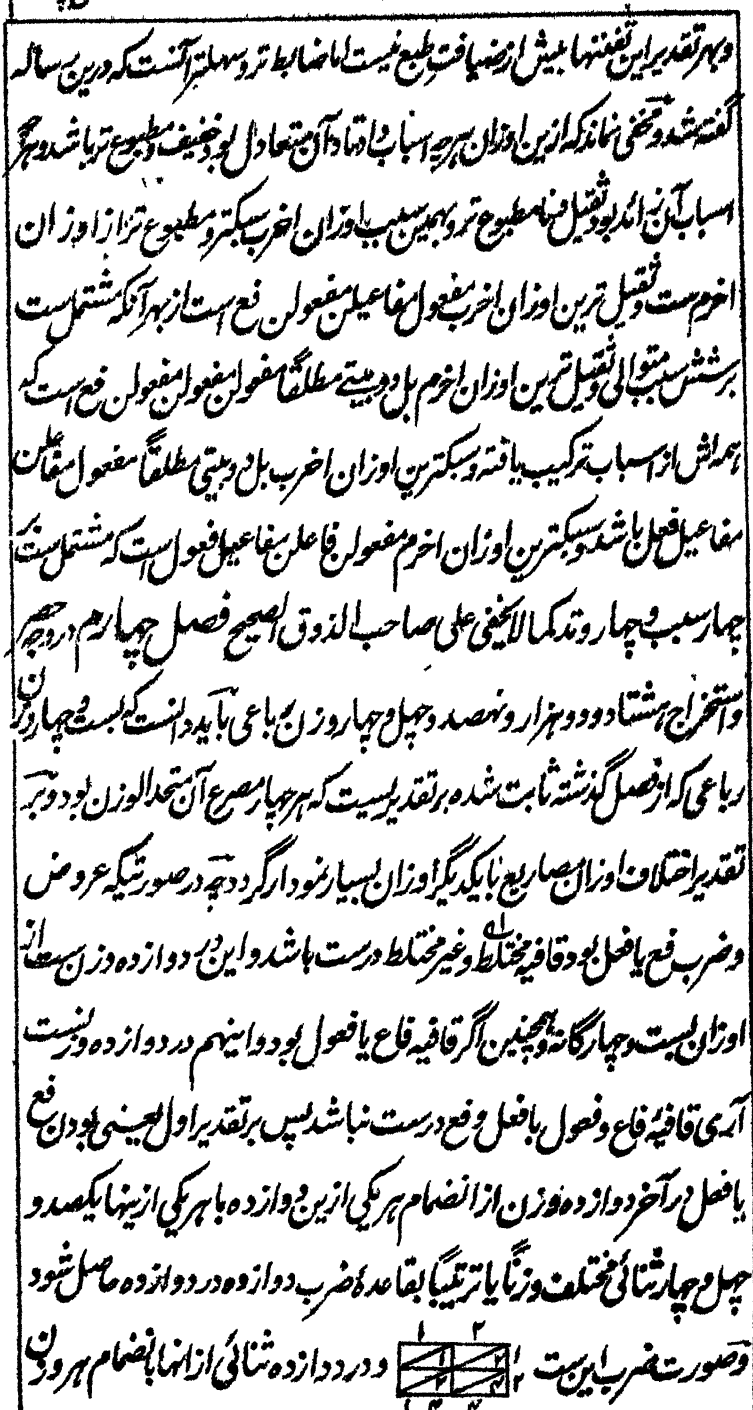 وبہر تقدیر این تفننہا بیش از ضیافت طبع نیست اما ضابط تر و سہلتر آنست کہ درین رسالہ
گفتہ شد و مخفی نماند کہ ازین اوزان ہرچہ اسباب و اوتاد آن متعادل بود خفیف و مطبوع تر باشد و ہرچہ
اسباب آن زائد بود ثقیل و نامطبوع تر و بہمین سبب اوزان اخرب سبکتر و مطبوع تر از اوزان
اخرم ست و ثقیل ترین اوزان اخرب مفعول مفاعیلن مفعولن فع است از بہر آنکہ مشتمل ست
بر شش سبب متوالی و ثقیل ترین اوزان اخرم بل دو بیتے مطلقاً مفعولن مفعولن مفعولن فع است کہ
ہمہ اش از اسباب ترکیب یافتہ و سبکترین اوزان اخرب بل دو بیتی مطلقاً مفعول مفاعلن
مفاعیل فعل باشد و سبکترین اوزان اخرم مفعولن فاعلن مفاعیل فعول است کہ مشتمل ست بر
چہار سبب و چہار وتد کما لا یخفی علی صاحب الذوق الصحیح فصل چہارم در وجہ حصر
و استخراج ہشتاد و دو ہزار و نہصد و چہل و چہار وزن رباعی باید دانست کہ بست و چہار وزن
رباعی کہ از فصل گذشتہ ثابت شدہ بر تقدیریست کہ ہر چہار مصرع آن متحد الوزن بود و بر
تقدیر اختلاف اوزان مصاریع با یکدیگر اوزان بسیار نمودار گردد چہ در صورتیکہ عروض
و ضرب فع یا فعل بود قافیہ مختلط و غیر مختلط درست باشد و این در دوازدہ وزن ست از
اوزان بیست و چہارگانہ و ہمچنین اگر قافیہ فاع یا فعول بود و اینہم در دوازدہ وزنست
آری قافیۂ فاع و فعول با فعل و فع درست نباشد پس بر تقدیر اول یعنی بودن فع
یا فعل در آخر دوازدہ وزن از انضمام ہر یکی ازین دوازدہ با ہر یکی ازینہا یکصد و
چہل و چہار ثنائی مختلف وزنًا یا ترتیبًا بقاعدۂ ضرب دوازدہ در دوازدہ حاصل شود
و صورت ضرب این ست و در دوازدہ ثنائی ازانہا بانضمام ہر وزن